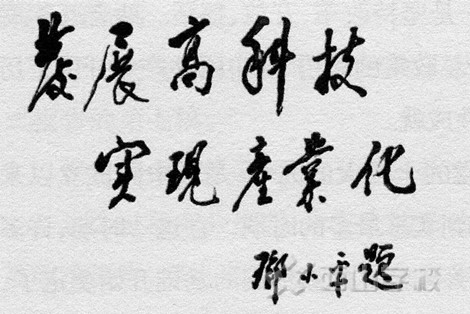 發展高科技
实現產業化
鄧小平题